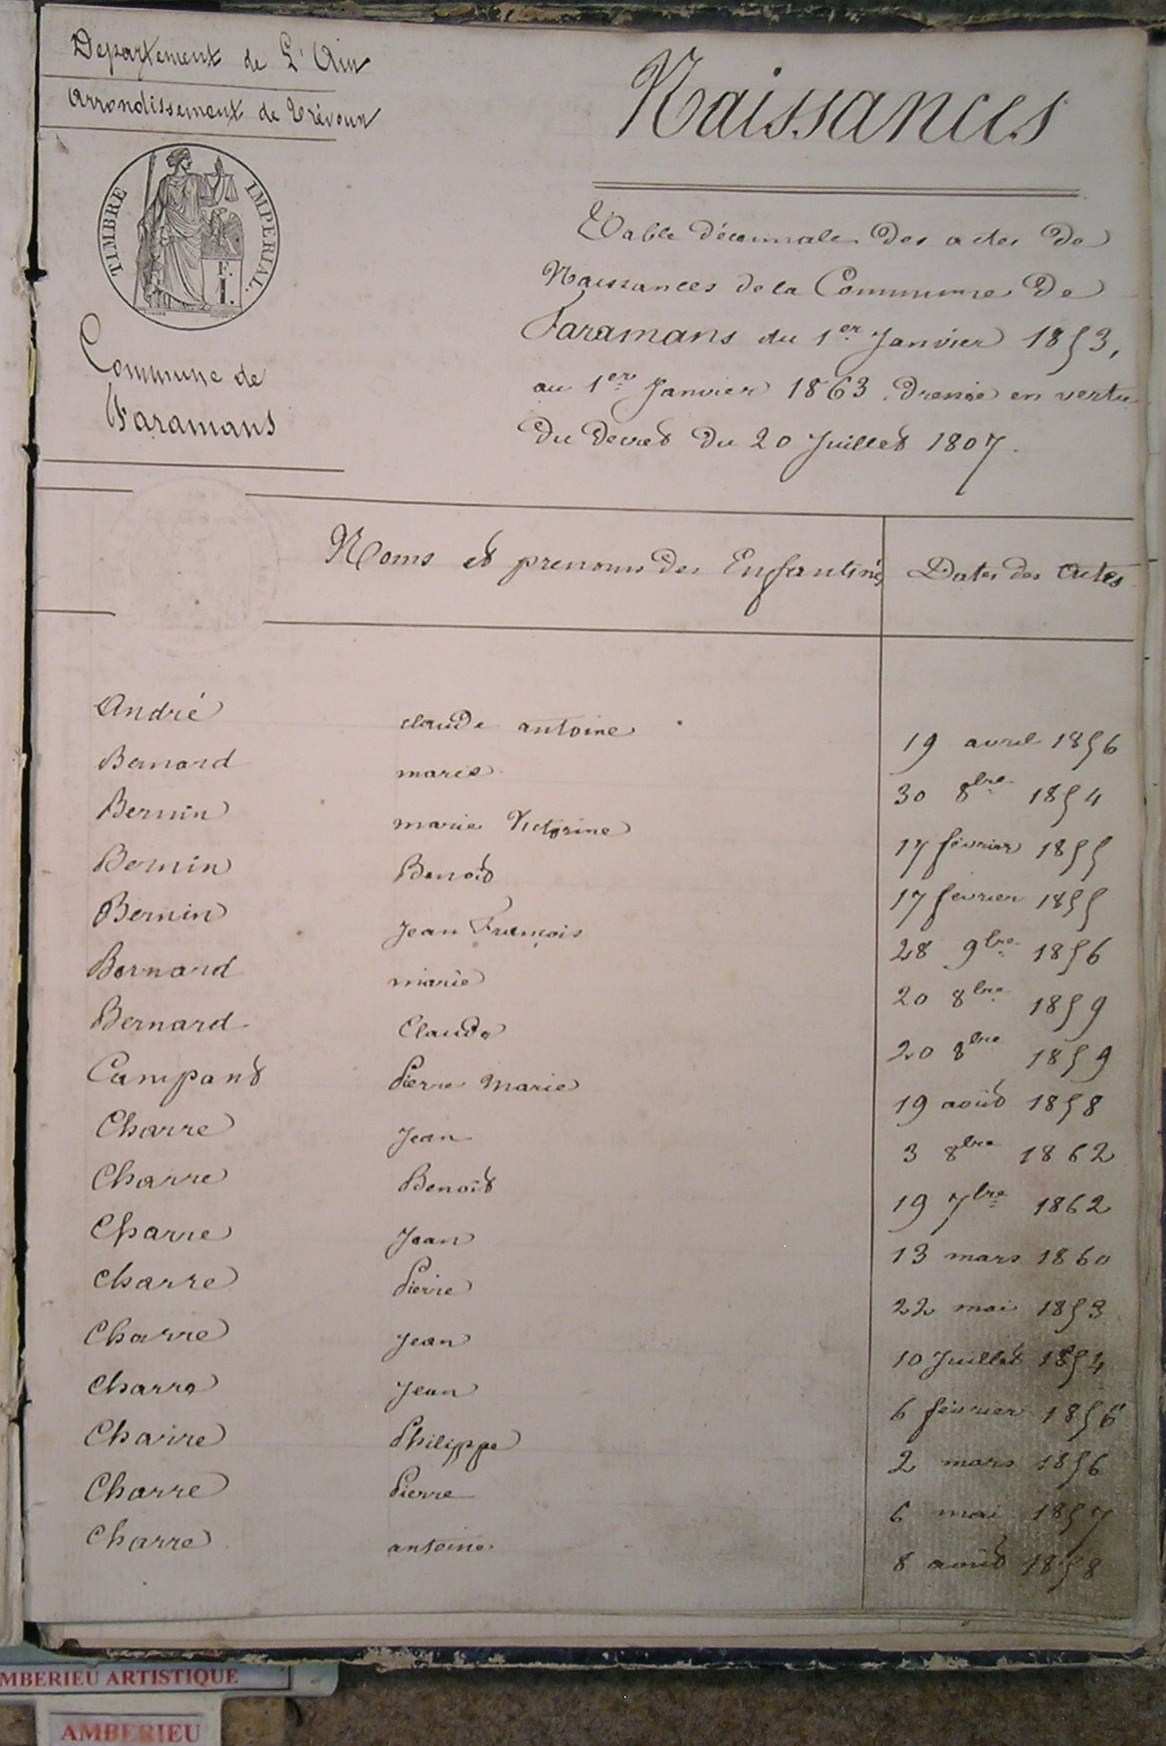 Departement de L'Ain
Arrondissement de Trévoux
TIMBRE IMPERIAL.
F.
I.
Commune de
Faramans
Naissances
Table décennale des actes de
Naissances de la Commune de
Faramans du 1er Janvier 1853,
au 1er Janvier 1863. Dressée en vertu
Du Decret Du 20 Juillet 1807.
Noms et prenoms des Enfants nés Dates des Actes
André claude antoine 19 avril 1856
Bernard marie 30 8bre 1854
Bernin marie Victorine 17 février 1855
Bernin Benoit 17 fevrier 1855
Bernin Jean François 28 9bre 1856
Bernard marie 20 8bre 1859
Bernard Claude 20 8bre 1859
Campant Pierre Marie 19 août 1858
Charre Jean 3 8bre 1862
Charre Benoit 19 7bre 1862
Charre Jean 13 mars 1860
Charre Pierre 22 mai 1853
Charre Jean 10 Juillet 1854
Charre Jean 6 février 1856
Charre Philippe 2 mars 1856
Charre Pierre 6 mai 1857
Charre antoine 8 août 1858
MBERIEU ARTISTIQUE
AMBERIEU